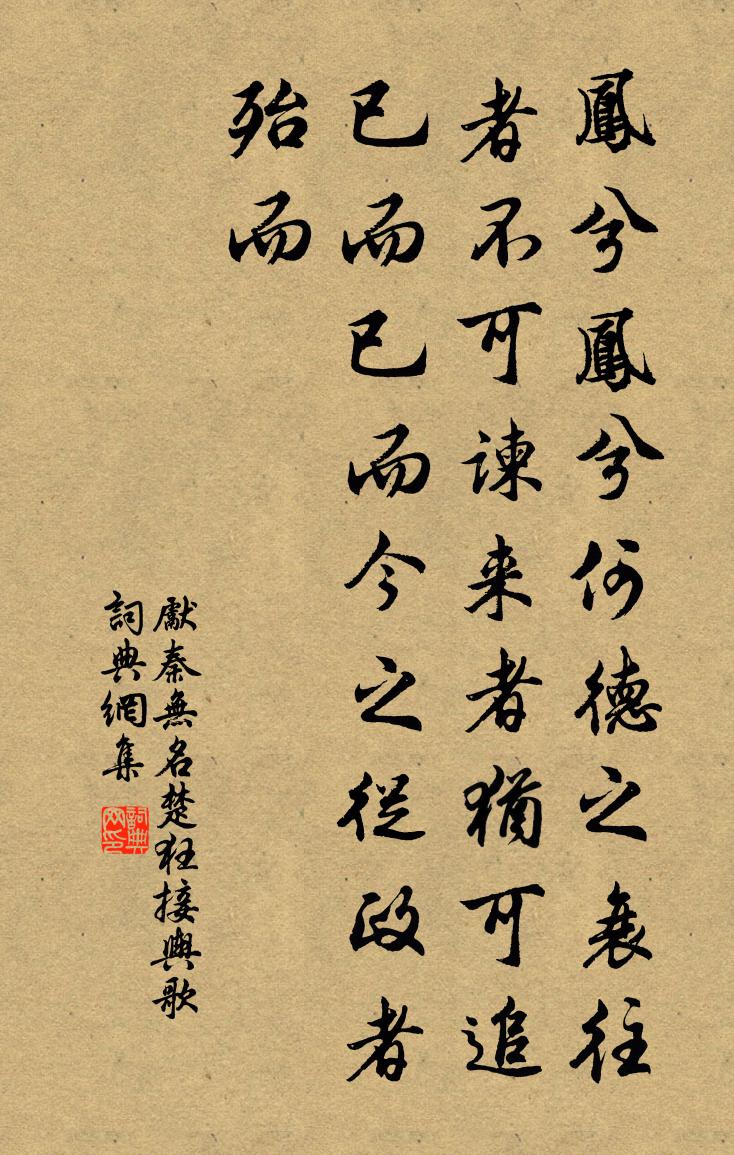 鳳兮鳳兮何德之衰往
者不可諫来者猶可追
已而已而今之從政者
殆而
獻秦無名楚狂接輿歌
詞典網集
詞典网印